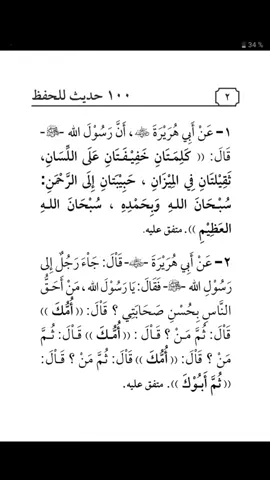 34 %
١٠٠ حديث للحفظ ٢
١- عَنْ أَبِي هُرَيْرَةَ ﵁، أَنَّ رَسُوْلَ الله -ﷺ-
قَالَ: (( كَلِمَتَانِ خَفِيْفَتَانِ عَلَى اللِّسَانِ،
ثَقِيْلَتَانِ فِي المِيْزَانِ ، حَبِيْبَتَانِ إِلَى الرَّحْمَنِ:
سُبْحَانَ اللهِ وَبِحَمْدِهِ ، سُبْحَانَ اللهِ
العَظِيْمِ )). متفق عليه.
٢- عَنْ أَبِي هُرَيْرَةَ -﵁- قَالَ: جَاْءَ رَجُلٌ إِلى
رَسُوْلِ اللهِ -ﷺ- فَقَالَ: يَا رَسُوْلَ الله، مَنْ أَحَقُّ
النَّاسِ بِحُسْنِ صَحَابَتِي ؟ قَاْلَ: (( أُمُّكَ ))
قَاْلَ: ثُمَّ مَنْ ؟ قَاْلَ : (( أُمُّكَ )) قَاْلَ: ثُمَّ
مَنْ ؟ قَاْلَ: (( أُمُّكَ )) قَاْلَ: ثُمَّ مَنْ ؟ قَاْلَ:
(( ثُمَّ أَبُوْكَ )). متفق عليه.